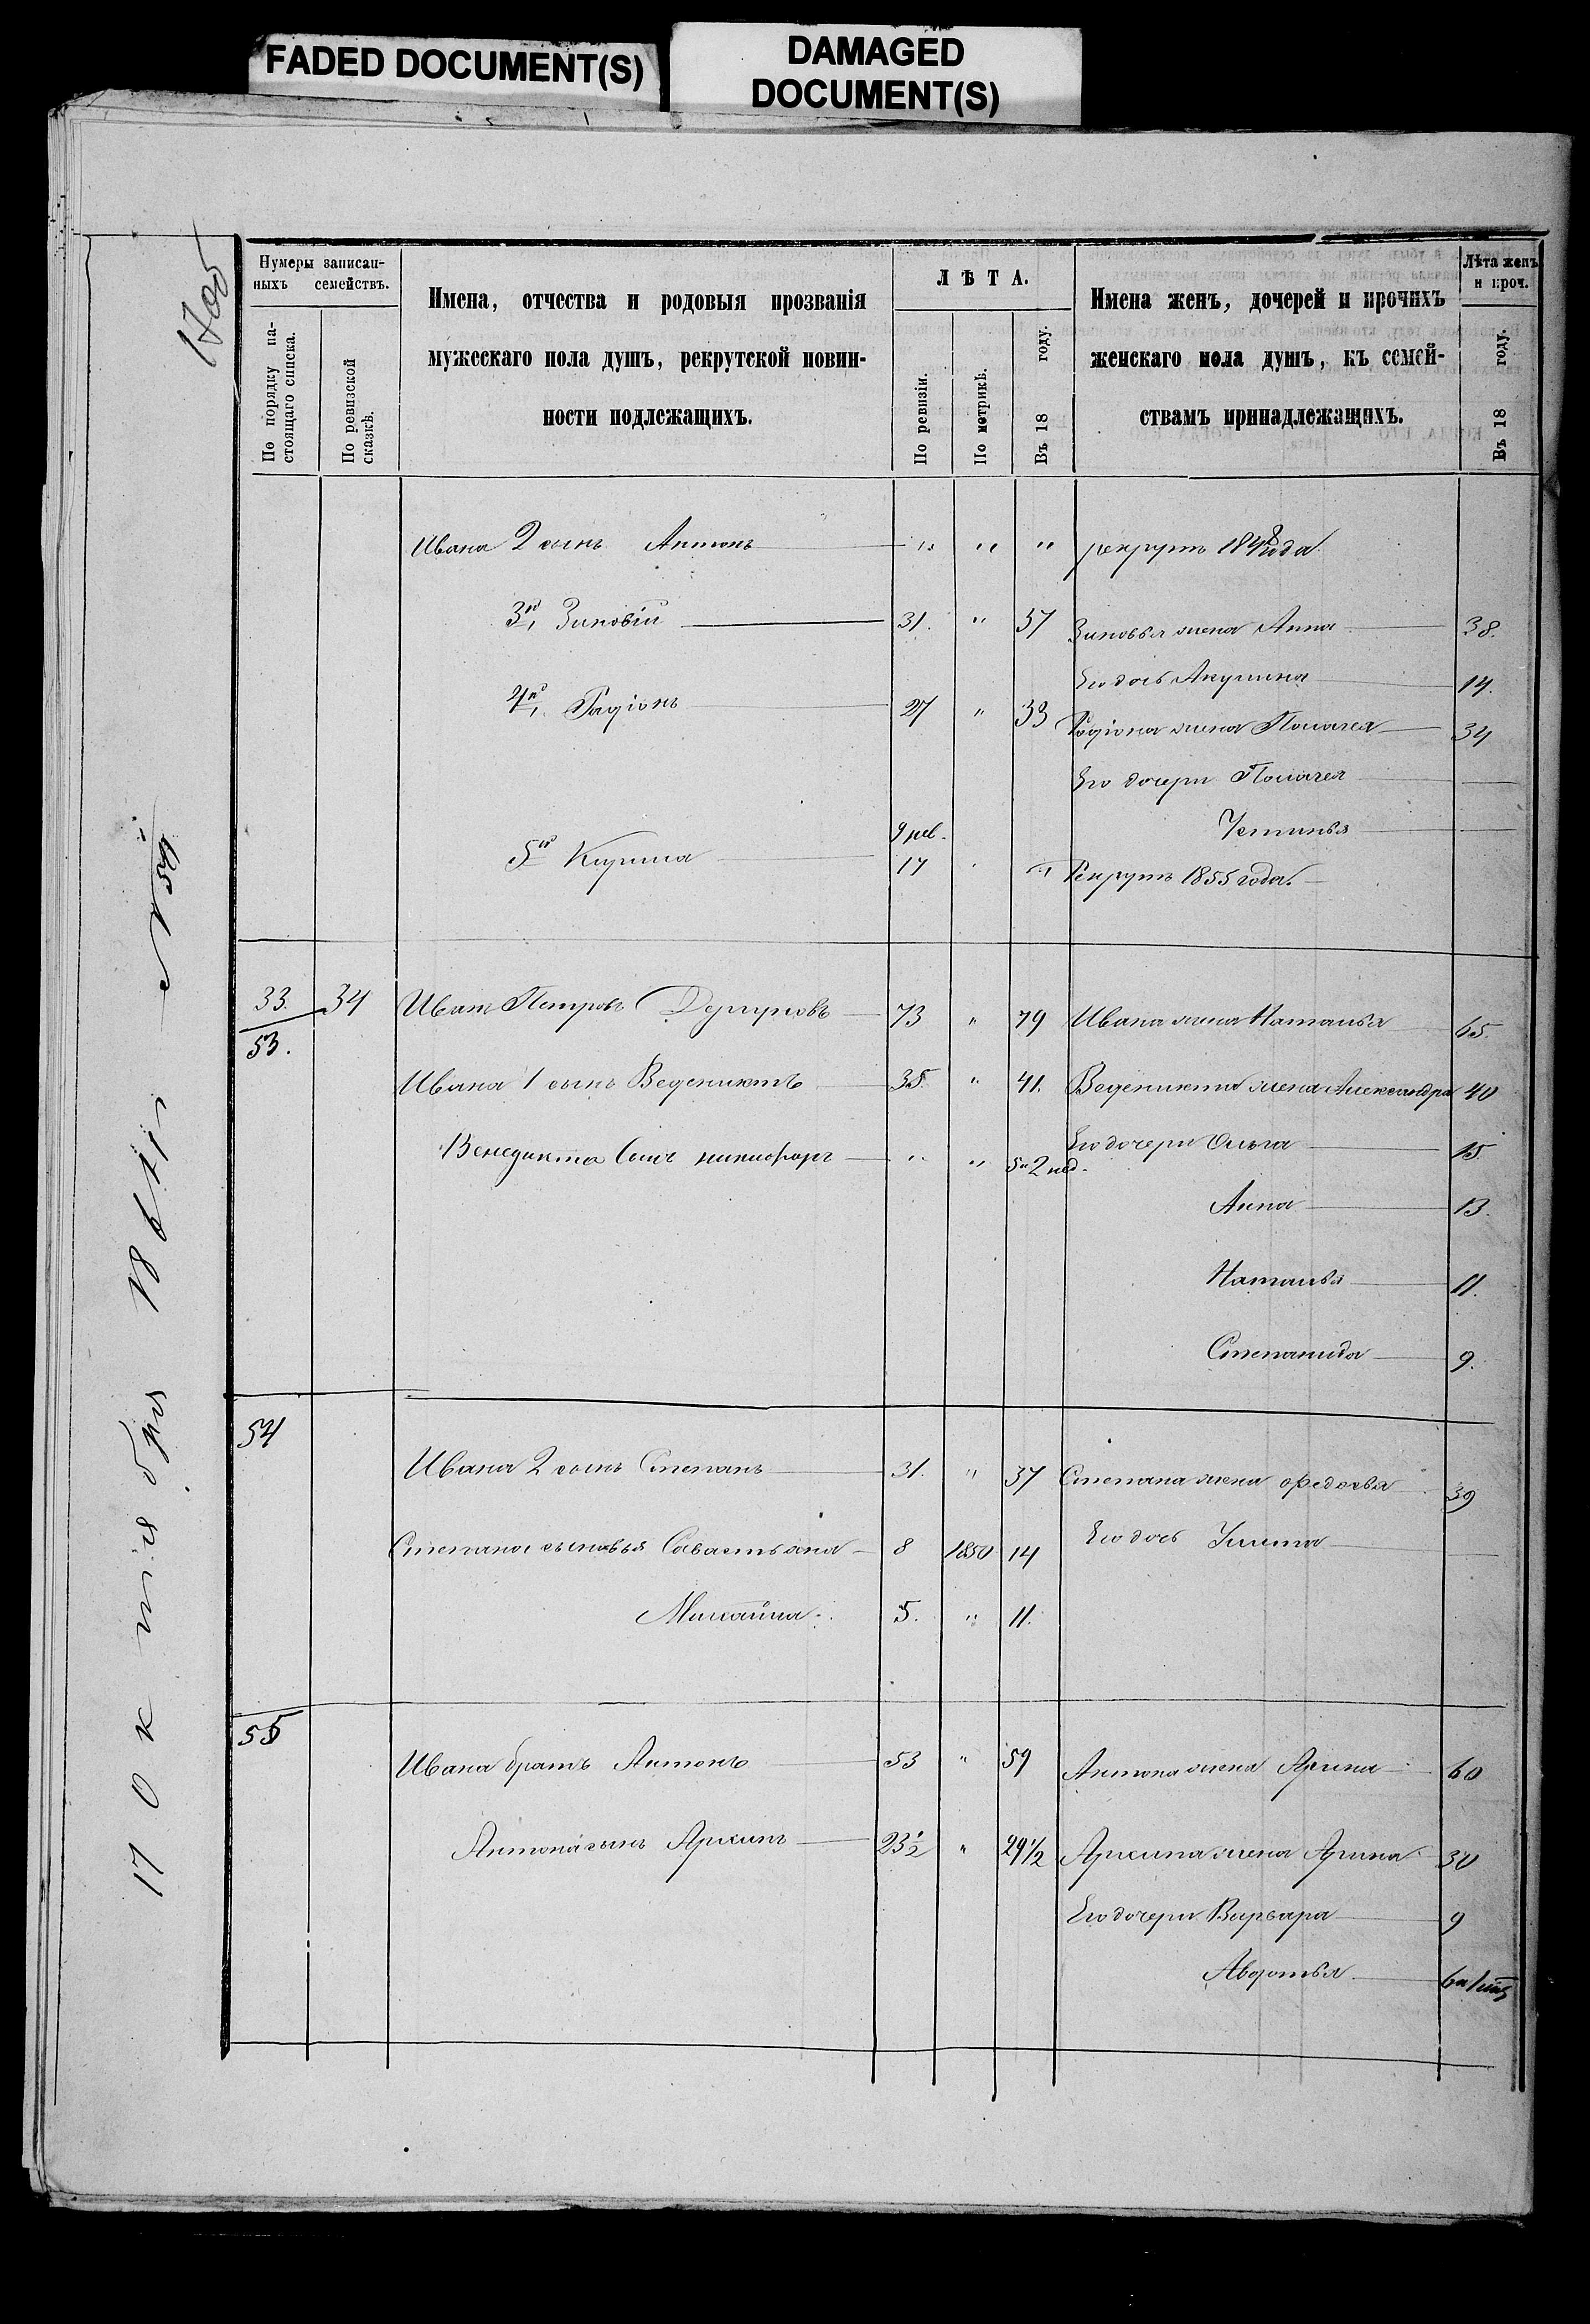 FADED DOCUMENT(S)
DAMAGED
DOCUMENT(S)
Нумеры записан-
ныхъ семействъ.
По порядку на-
стоящаго списка.
По ревизской
сказкѣ.
Имена, отчества и родовыя прозванія
мужескаго пола душъ, рекрутской повин-
ности подлежащихъ.
ЛѢТА.
По ревизіи.
По метрикѣ.
Въ 18 году.
Имена женъ, дочерей и прочихъ
женскаго пола душъ, къ семей-
ствамъ принадлежащихъ.
Лѣта женъ
и проч.
Въ 18 году.
Ивана 2 сынъ Антонъ " " " рекрутъ 1848 года
3й Зиновій 31. " 37 Зиновья жена Анна 38.
Его дочь Акулина 14.
4й Радіонъ 27 " 33 Родіона жена Пелагея 34
Его дочери Пелагея
Устинья
9 рев.
5й Кирила 17 " Рекрутъ 1855 года.
33. 34 Иванъ Петровъ 73 " 79 Ивана жена Наталья 65.
53.
Ивана 1 сынъ Веденихтъ 35 " 41. Веденихта жена Александра 40
Венедикта сынъ никифоръ " " 5 и 2 нед. Его дочери Ольга 15
Анна 13.
Наталья 11.
Степанида 9.
54
Ивана 2 сынъ Степанъ 31. " 37 Степана жена Федосья 39
Степана сыновья Савастьяна 8 1850 14 Его дочь Улита
Михайла 5. " 11.
55
Ивана братъ Антонъ 53 " 59 Антона жена Арина 60
Антона сынъ Архипъ 23½ " 29½ Архипа жена Арина 30
Его дочери Варвара 9
Авдотья
17 октября 1864 г
№ 59